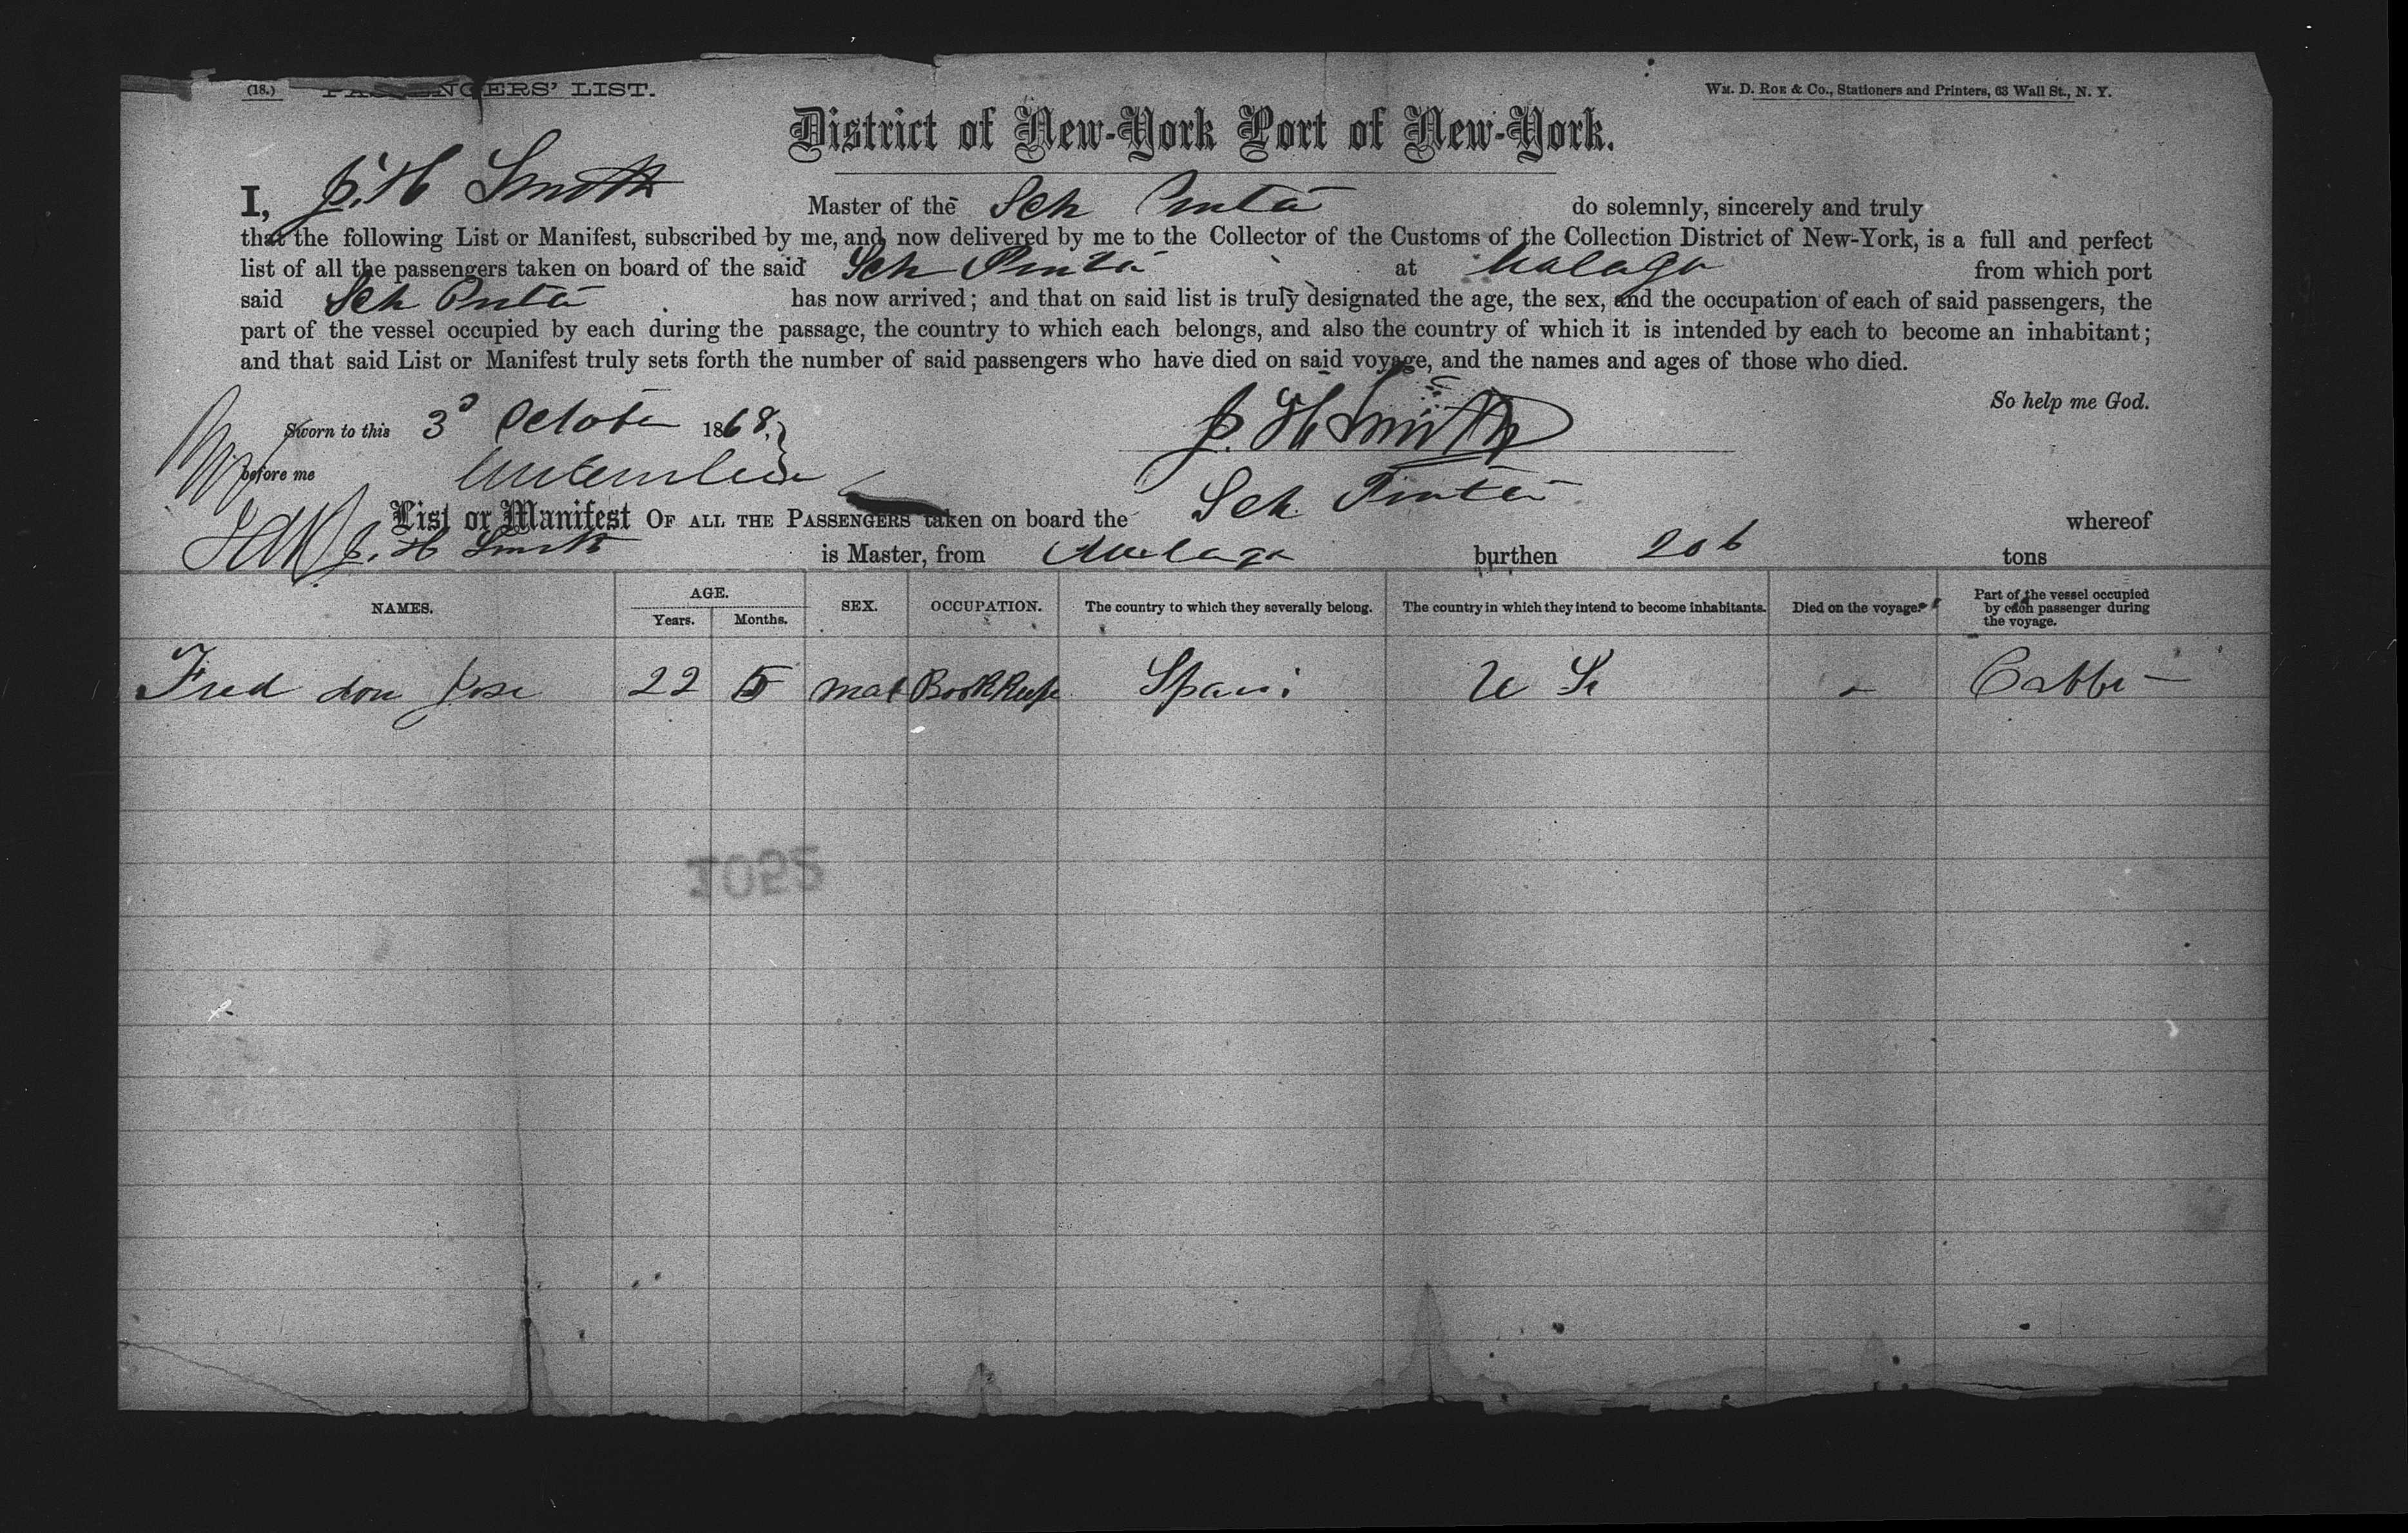 (18.) PASSENGERS' LIST.
Wm. D. Roe & Co., Stationers and Printers, 63 Wall St., N. Y.
District of New-York Port of New-York.
I, J. H Smith Master of the Sch Pinta do solemnly, sincerely and truly
that the following List or Manifest, subscribed by me, and now delivered by me to the Collector of the Customs of the Collection District of New-York, is a full and perfect
list of all the passengers taken on board of the said Sch Pinta at Malaga from which port
said Sch Pinta has now arrived; and that on said list is truly designated the age, the sex, and the occupation of each of said passengers, the
part of the vessel occupied by each during the passage, the country to which each belongs, and also the country of which it is intended by each to become an inhabitant;
and that said List or Manifest truly sets forth the number of said passengers who have died on said voyage, and the names and ages of those who died.
So help me God.
Sworn to this 3d October 1868. J. H Smith
before me
List or Manifest OF ALL THE PASSENGERS taken on board the Sch. Pinta whereof
J. H Smith is Master, from Malaga burthen 206 tons
NAMES. AGE. Years. Months. SEX. OCCUPATION. The country to which they severally belong. The country in which they intend to become inhabitants. Died on the voyage. Part of the vessel occupied by each passenger during the voyage.
Fred don Jose 22 5 Mal BookKeepe Spain U S -
1052